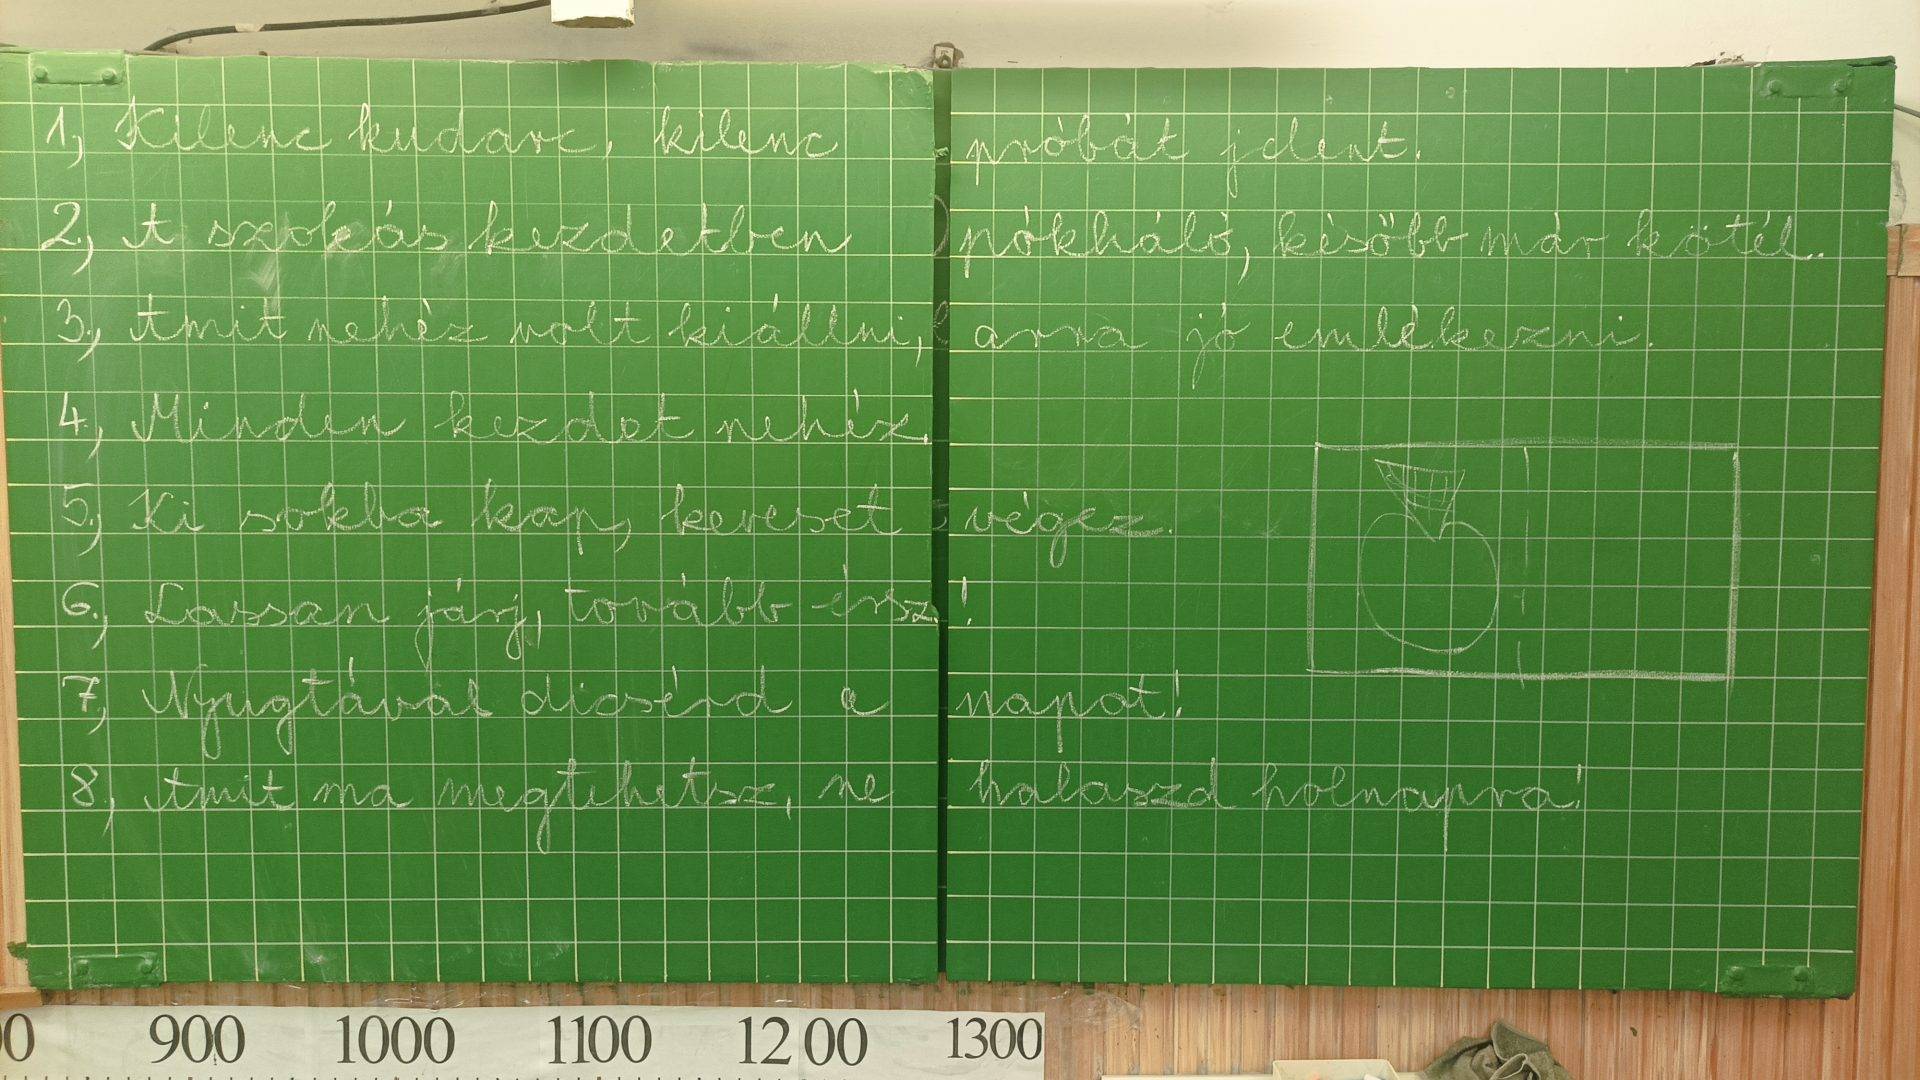 1, Kilenc kudarc, kilenc próbát jelent.
2., A szokás kezdetben pókháló, később már kötél.
3., Amit nehéz volt kiállni, arra jó emlékezni.
4., Minden kezdet nehéz.
5., Ki sokba kap, keveset végez.
6., Lassan járj, tovább érsz!
7., Nyugtával dicsérd a napot!
8., Amit ma megtehetsz, ne halaszd holnapra!
00 900 1000 1100 1200 1300